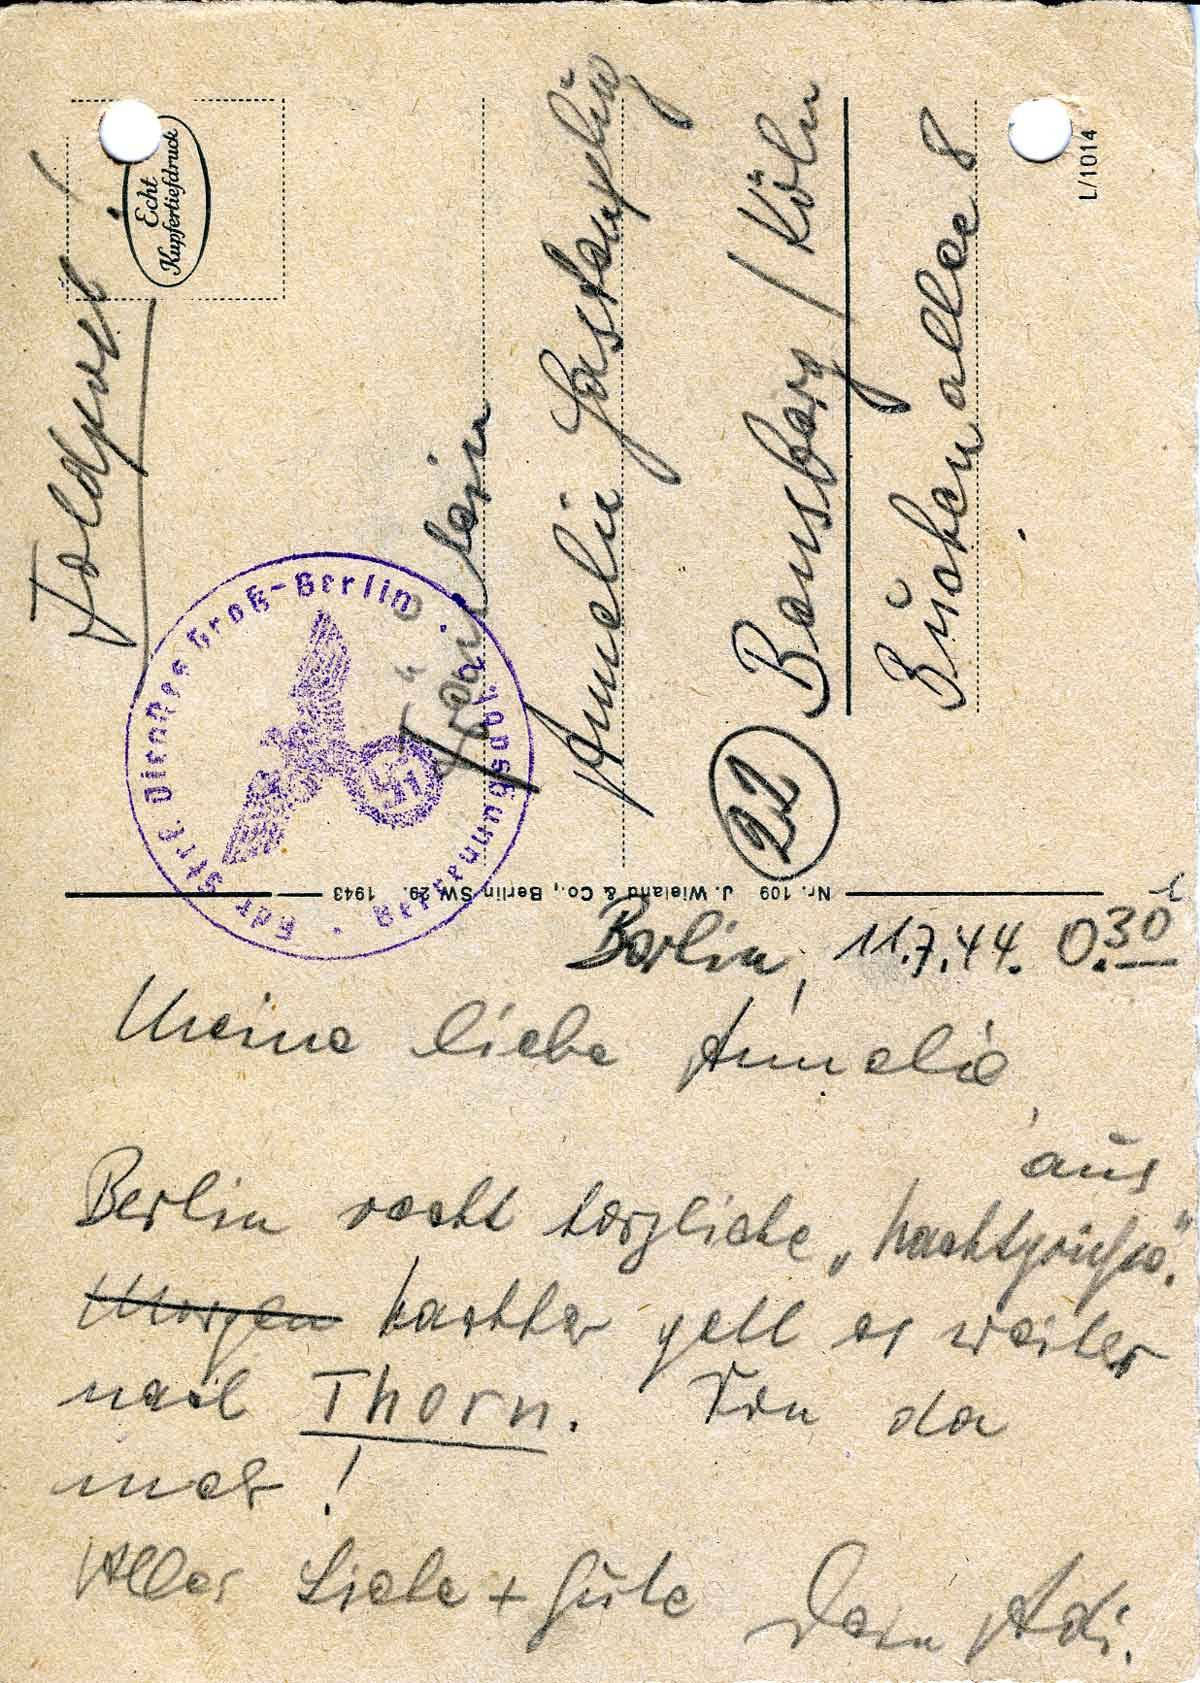 Feldpost!
Echt
Kupfertiefdruck
Fräulein
Annelie
Bensberg / Köln
Buchenallee 8
22
L/1014
Kdr. Str. Dienstes Groß-Berlin
Betreuungsabt.
Nr. 109 J. Wieland & Co., Berlin SW 29. 1943
Berlin, 11.7.44. 0.30
Meine liebe Annelie,
aus
Berlin recht herzliche „Nachtgrüße".
Morgen Nachher geht es weiter
nach Thorn. Von da
mehr!
Alles Liebe + Gute Dein Adi.